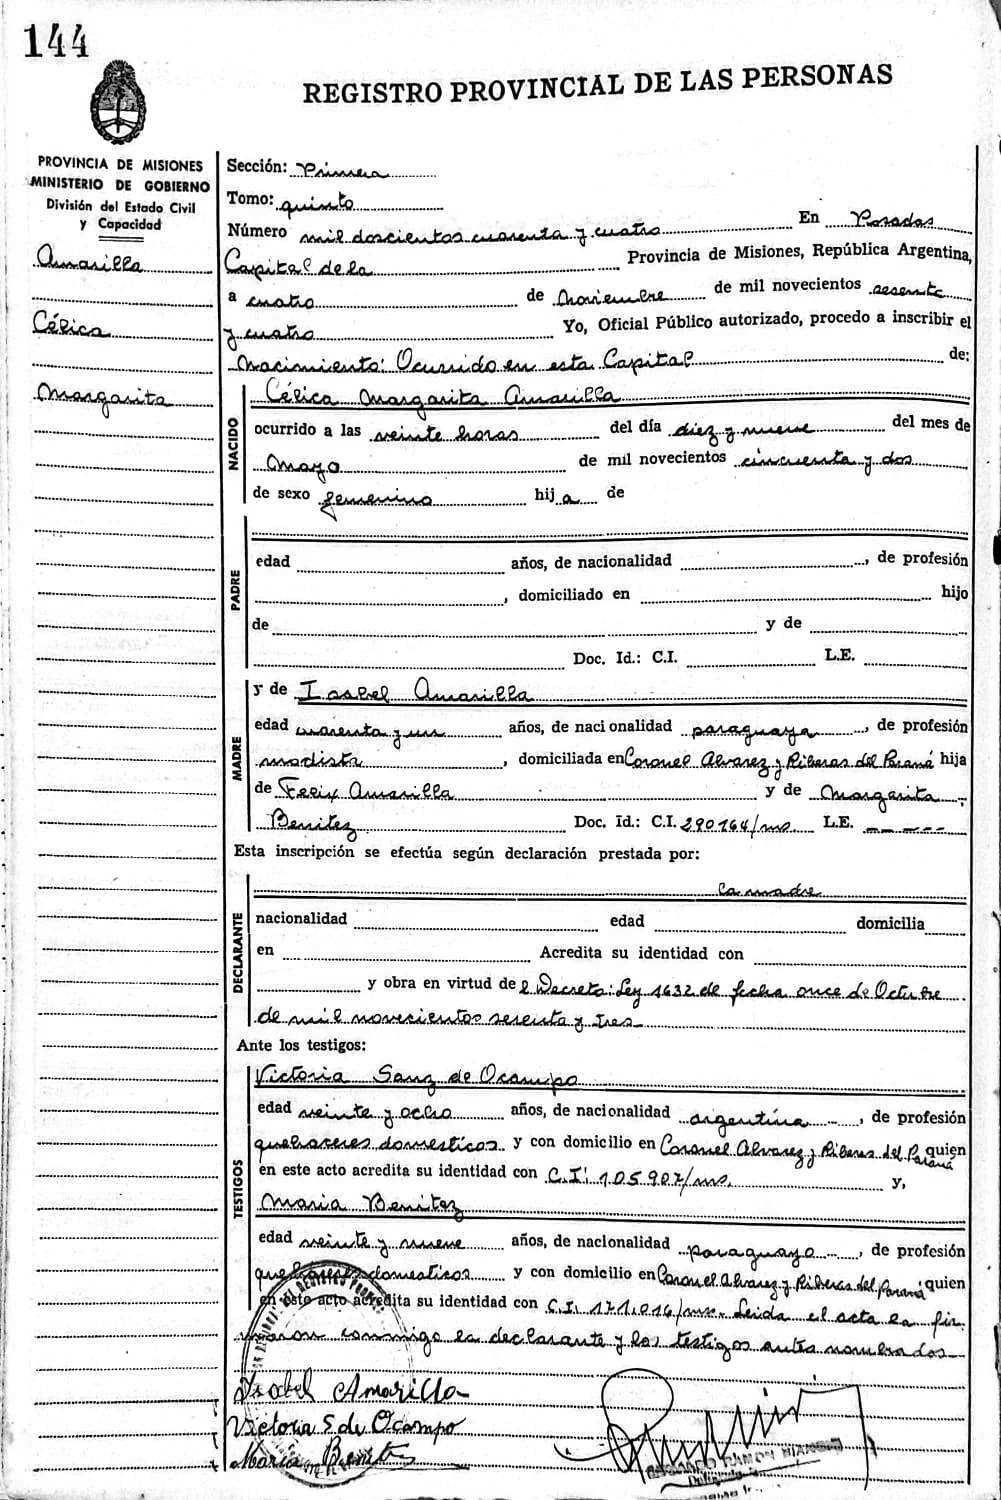 144
REGISTRO PROVINCIAL DE LAS PERSONAS
PROVINCIA DE MISIONES
MINISTERIO DE GOBIERNO
División del Estado Civil
y Capacidad
Amarilla
Célica
Margarita
Sección: Primera
Tomo: quinto
Número mil doscientos cuarenta y cuatro En Posadas
Capital de la Provincia de Misiones, República Argentina,
a cuatro de Noviembre de mil novecientos sesenta
y cuatro Yo, Oficial Público autorizado, procedo a inscribir el
Nacimiento: Ocurrido en esta Capital de:
NACIDO
Célica Margarita Amarilla
ocurrido a las veinte horas del día diez y nueve del mes de
Mayo de mil novecientos cincuenta y dos
de sexo femenino hija de
PADRE
edad años, de nacionalidad , de profesión
, domiciliado en hijo
de y de
Doc. Id.: C.I. L.E.
MADRE
y de Isabel Amarilla
edad cuarenta y un años, de nacionalidad paraguaya, de profesión
modista, domiciliada en Coronel Alvarez y Riberas del Paraná hija
de Felix Amarilla y de Margarita
Benitez Doc. Id.: C.I. 290164/ms. L.E. -----
Esta inscripción se efectúa según declaración prestada por:
DECLARANTE
la madre
nacionalidad edad domicilia
en Acredita su identidad con
y obra en virtud del Decreto: Ley 1632 de fecha once de Octubre
de mil novecientos sesenta y tres
Ante los testigos:
TESTIGOS
Victoria Sanz de Ocampo
edad veinte y ocho años, de nacionalidad argentina, de profesión
quehaceres domesticos y con domicilio en Coronel Alvarez y Riberas del Paraná quien
en este acto acredita su identidad con C.I: 105.907/ms. y,
Maria Benitez
edad veinte y nueve años, de nacionalidad paraguayo, de profesión
quehaceres domesticos y con domicilio en Coronel Alvarez y Riberas del Paraná quien
en este acto acredita su identidad con C.I. 171.016/ms. Leida el acta la fir
maron conmigo la declarante y los testigos antes nombrados
Isabel Amarilla
Victoria S de Ocampo
Maria Benitez
RAMON